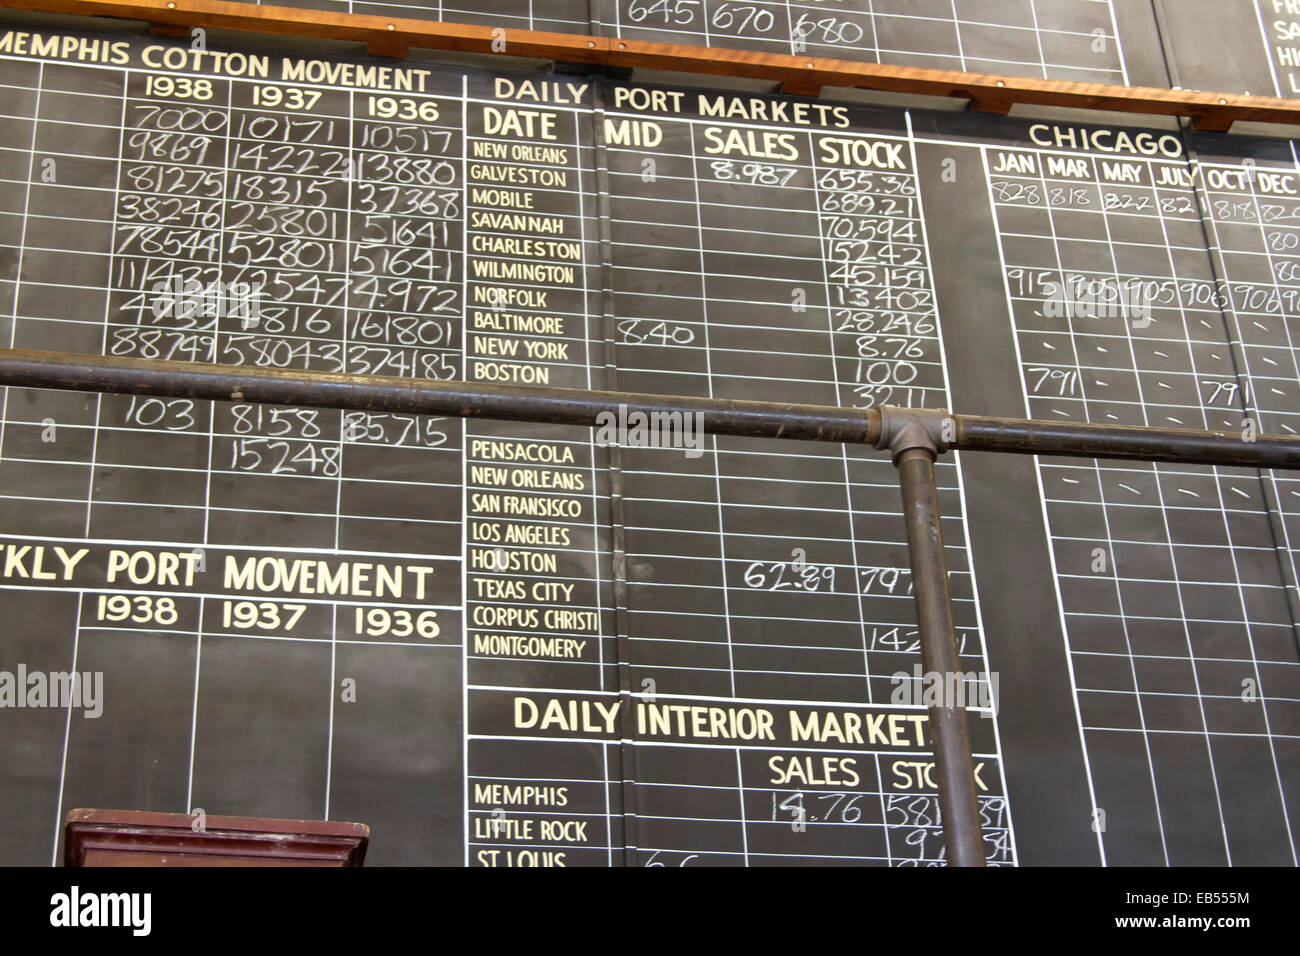 645 670 680
MEMPHIS COTTON MOVEMENT
1938 1937 1936
7000 10171 10517
9869 14222 13880
81275 18315 37368
38246 25801 51641
78544 52801 51641
88749 58043 374185
103 8158 85.715
15248
PORT MOVEMENT
1938 1937 1936
DAILY PORT MARKETS
DATE MID SALES STOCK
NEW ORLEANS 8.987 655.36
GALVESTON 689.21
MOBILE 70,594
SAVANNAH 15242
CHARLESTON 45.159
WILMINGTON 13402
NORFOLK 28.246
BALTIMORE 8.40 8.76
NEW YORK 100
BOSTON 32.11
PENSACOLA
NEW ORLEANS
SAN FRANSISCO
LOS ANGELES
HOUSTON 62.89
TEXAS CITY
CORPUS CHRISTI
MONTGOMERY
DAILY INTERIOR MARKET
SALES
MEMPHIS 14.76
LITTLE ROCK
ST LOUIS
CHICAGO
JAN MAR MAY JULY OCT DEC
828 818 822 821 818
915 905 905 906 906
791 - - - 791 -
alamy
Image ID: EB555M
www.alamy.com